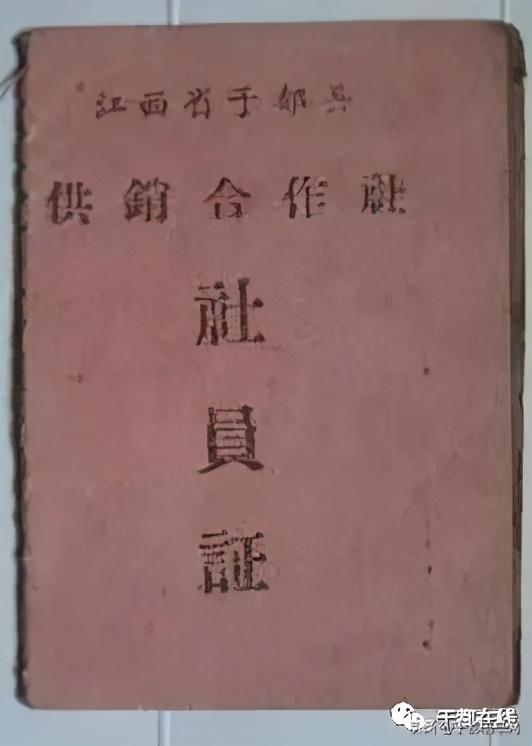 江西省于都县
供銷合作社
社
員
証
于都在线